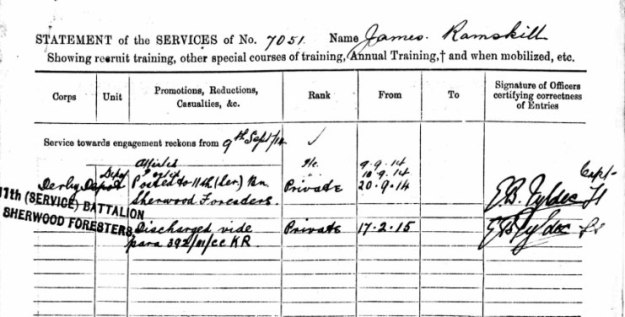 STATEMENT of the SERVICES of No. 7051 Name James Ramskill
Showing recruit training, other special courses of training, Annual Training,† and when mobilized, etc.
Corps Unit Promotions, Reductions, Casualties, &c. Rank From To Signature of Officers certifying correctness of Entries
Service towards engagement reckons from 9th Sept/14
9.9.14
Depot Posted 10.9.14
Derby Depot Posted to 11th (Ser) Bn Private 20.9.14
Sherwood Foresters Capt
11TH (SERVICE) BATTALION
SHERWOOD FORESTERS
Discharged vide Private 17.2.15
para 392/III/cc KR